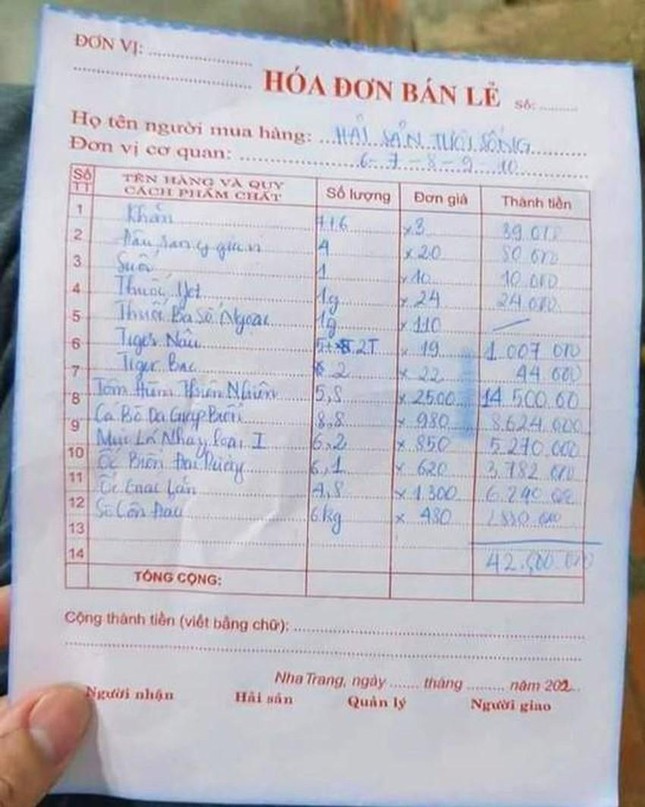 ĐƠN VỊ: ..................
HÓA ĐƠN BÁN LẺ Số: .........
Họ tên người mua hàng: HẢI SẢN TƯƠI SỐNG
Đơn vị cơ quan: 6-7-8-9-10
Số TT TÊN HÀNG VÀ QUY CÁCH PHẨM CHẤT Số lượng Đơn giá Thành tiền
1 Khăn x3 39 000
2 4 x20 80 000
3 Suối 1 x10 10.000
4 Thuốc 1g x24 24.000
5 Thuốc Ba Số Ngoại 1g x110
6 Tiger Nâu x 19 1 007 000
7 Tiger Bạc 2 x 22 44 000
8 Tôm Hùm Thiên Nhiên 5,8 x 2500 14 500.00
9 Cá Bò Da Giáp Biển 8,8 x 980 8.624.000
10 Mực Lá Nháy loại I 6,2 x 850 5.270.000
11 Ốc Biển 6,1 x 620 3.782 000
12 Ốc 4,8 x 1.300 6.240 000
13 6kg x 480 2880 000
14 42.500 000
TỔNG CỘNG:
Cộng thành tiền (viết bằng chữ): ..................
Nha Trang, ngày ........ tháng ......... năm 202..
Người nhận Hải sản Quản lý Người giao